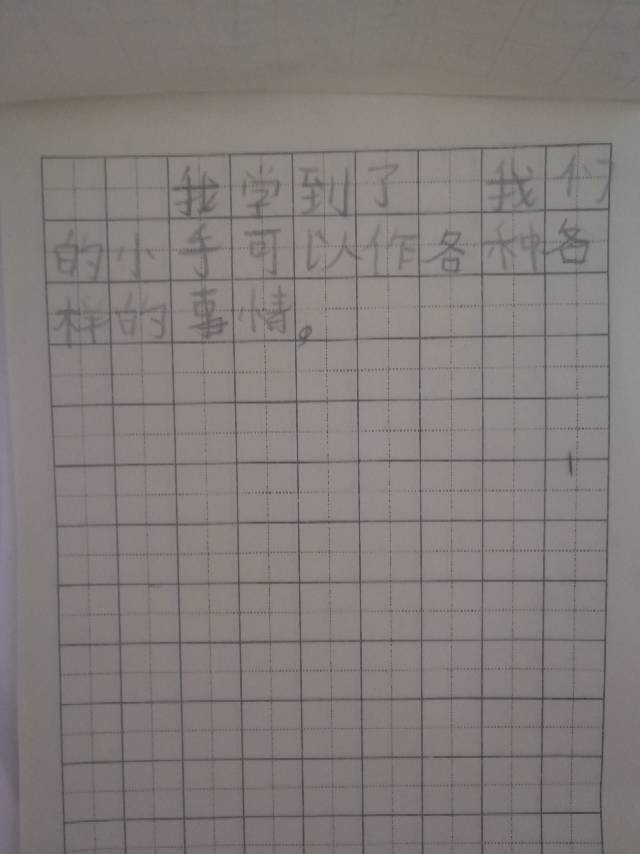 我学到了 我们
的小手可以作各种各
样的事情。